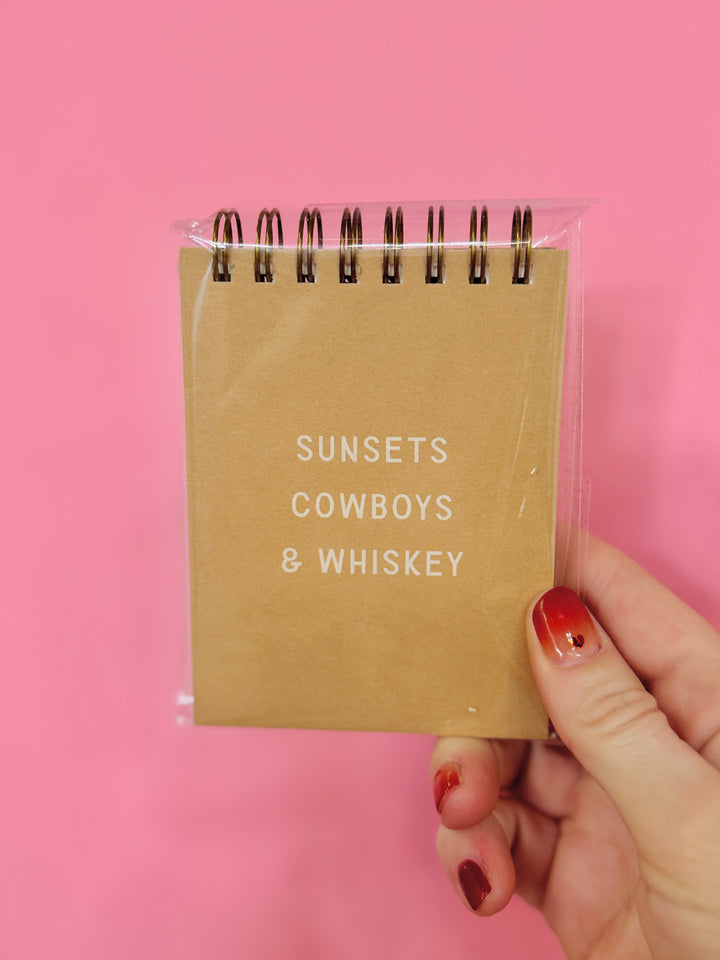 SUNSETS
COWBOYS
& WHISKEY